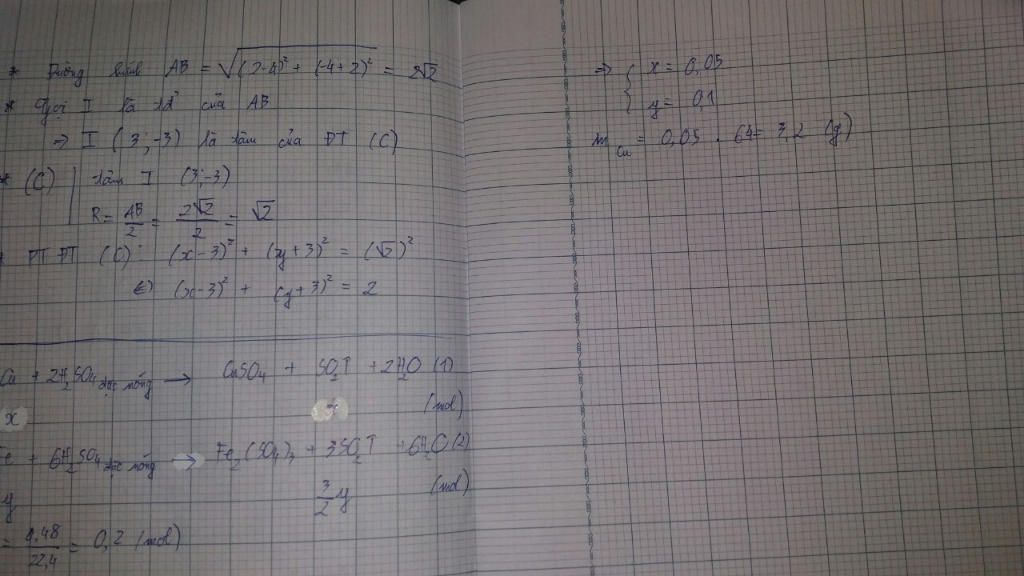 * Đường kính AB = √((2-4)² + (-4+2)²) = 2√2
* Gọi I là tđ của AB
⇒ I (3;-3) là tâm của ĐT (C)
* (C) | tâm I (3;-3)
R = AB/2 = 2√2/2 = √2
PT ĐT (C): (x-3)² + (y+3)² = (√2)²
(x-3)² + (y+3)² = 2
Cu + 2H₂SO₄ đặc nóng → CuSO₄ + SO₂↑ + 2H₂O (1)
x (mol)
+ 6H₂SO₄ đặc nóng → Fe₂(SO₄)₃ + 3SO₂↑ + 6H₂O (2)
y 3/2 y (mol)
= 4,48/22,4 = 0,2 (mol)
⇒ { x = 0,05
y = 0,1
m Cu = 0,05 . 64 = 3,2 (g)